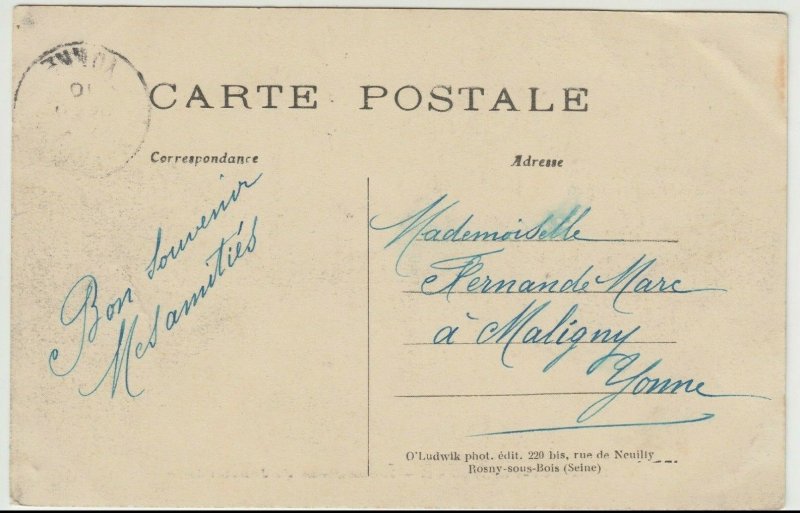 YONNE
10
CARTE POSTALE
Correspondance
Adresse
Bon souvenir
Mes amitiés
Mademoiselle
Fernande Marc
à Maligny
Yonne
O'Ludwik phot. édit. 220 bis, rue de Neuilly
Rosny-sous-Bois (Seine)